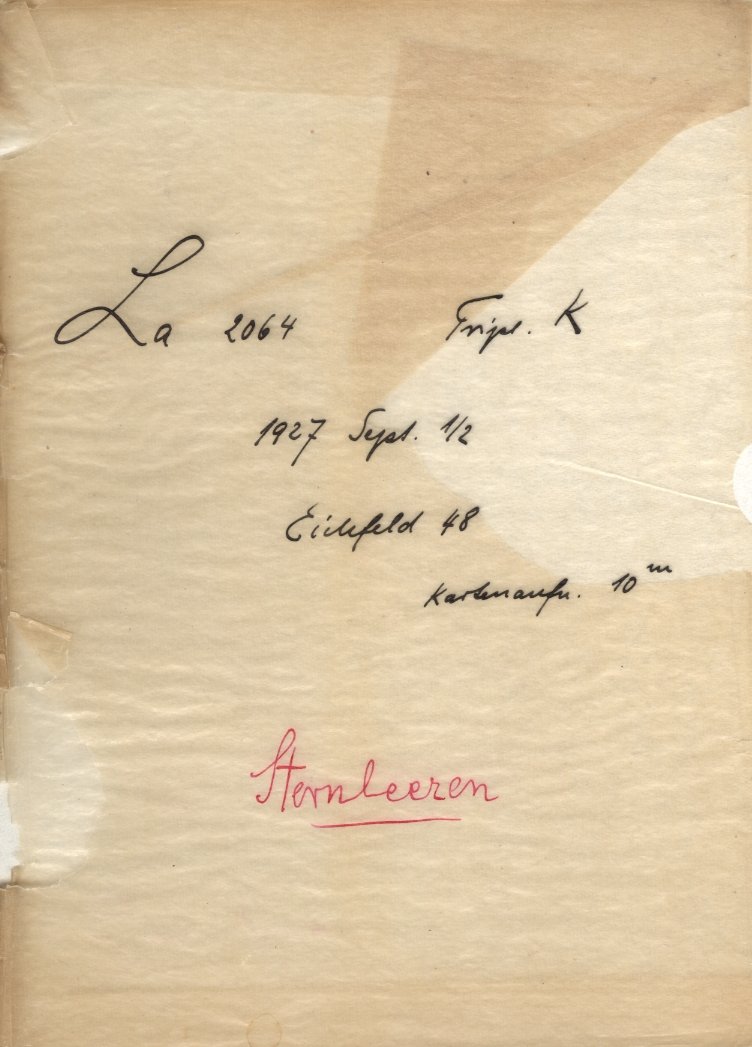 La 2064 Tripl. K
1927 Sept. 1/2
Eichfeld 48
Kartenaufn. 10ᵐ
Sternleeren